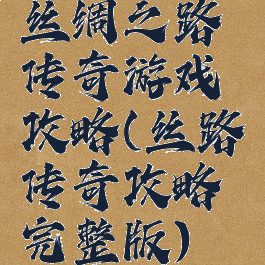 丝绸之路
传奇游戏
攻略(丝路
传奇攻略
完整版)